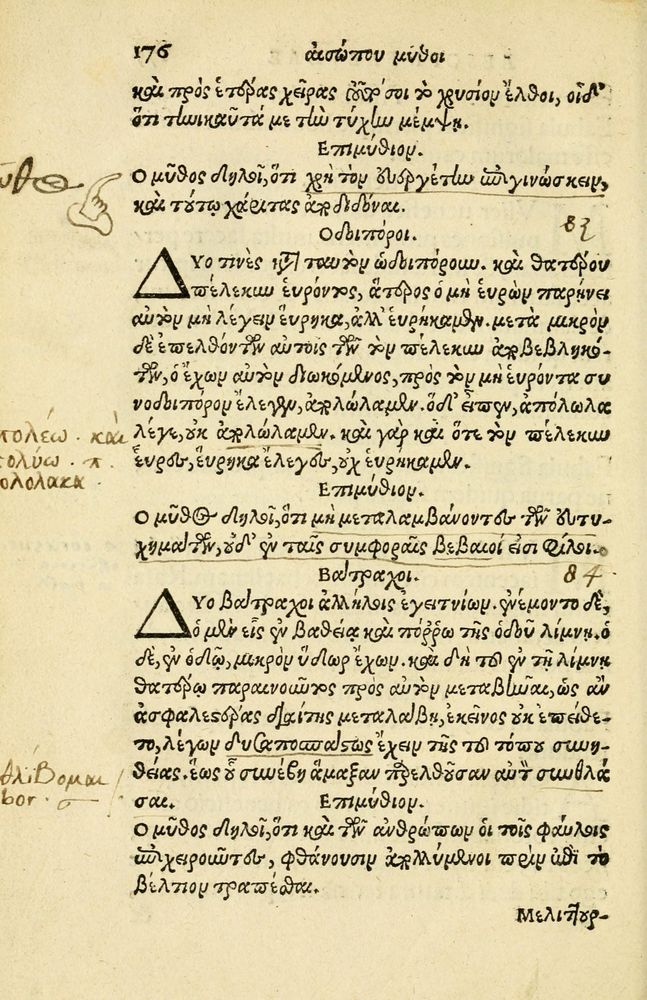 176 αἰσώπου μῦθοι
καὶ πρὸς ἑτέρας χεῖρας σοι τὸ χρυσίον ἔλθοι, οἶδ'
ὅτι τηνικαῦτά με τὴν τύχην μέμψῃ.
Επιμύθιον.
Ο μῦθος δηλοῖ, ὅτι χρὴ τὸν εὐεργέτην ἐπιγινώσκειν,
καὶ τούτῳ χάριτας ἀποδιδόναι.
Οδοιπόροι. 83
ΔΥο τινὲς κατὰ ταυτὸν ὡδοιπόρουν. καὶ θατέρου
πέλεκυν εὑρόντος, ἅτερος ὁ μὴ εὑρὼν παρῄνει
αὐτὸν μὴ λέγειν εὕρηκα, ἀλλ' εὑρήκαμεν. μετὰ μικρὸν
δὲ ἐπελθόντων αὐτοῖς τῶν τὸν πέλεκυν ἀποβεβληκό-
των, ὁ ἔχων αὐτὸν διωκόμενος, πρὸς τὸν μὴ εὑρόντα συ
νοδοιπόρον ἔλεγεν, ἀπολώλαμεν. ὁ δ' εἶπεν, ἀπόλωλα
λέγε, οὐκ ἀπολώλαμεν. καὶ γὰρ καὶ ὅτε τὸν πέλεκυν
εὗρες, εὕρηκα ἔλεγες, οὐχ εὑρήκαμεν.
Επιμύθιον.
Ο μῦθος δηλοῖ, ὅτι μὴ μεταλαμβάνοντες τῶν εὐτυ-
χημάτων, οὐδ' ἐν ταῖς συμφοραῖς βέβαιοί εἰσι φίλοι.
Βάτραχοι. 84
ΔΥο βάτραχοι ἀλλήλοις ἐγειτνίων. ἐνέμοντο δὲ,
ὁ μὲν εἷς ἐν βαθείᾳ καὶ πόρρω τῆς ὁδοῦ λίμνῃ. ὁ
δὲ, ἐν ὁδῷ, μικρὸν ὕδωρ ἔχων. καὶ δὴ τοῦ ἐν τῇ λίμνῃ
θατέρῳ παραινοῦντος πρὸς αὐτὸν μεταβῆναι, ὡς ἂν
ἀσφαλεστέρας διαίτης μεταλάβῃ, ἐκεῖνος οὐκ ἐπείθε-
το, λέγων δυσαποσπάστως ἔχειν τῆς τοῦ τόπου συνη-
θείας. ἕως οὗ συνέβη ἅμαξαν παρελθοῦσαν αὐτὸν συνθλά
σαι. Επιμύθιον.
Ο μῦθος δηλοῖ, ὅτι καὶ τῶν ἀνθρώπων οἱ τοῖς φαύλοις
ἐπιχειροῦντες, φθάνουσιν ἀπολλύμενοι πρὶν ἐπὶ τὸ
βέλτιον τραπέσθαι.
Μελιττουρ-
θλίβομαι
bor.